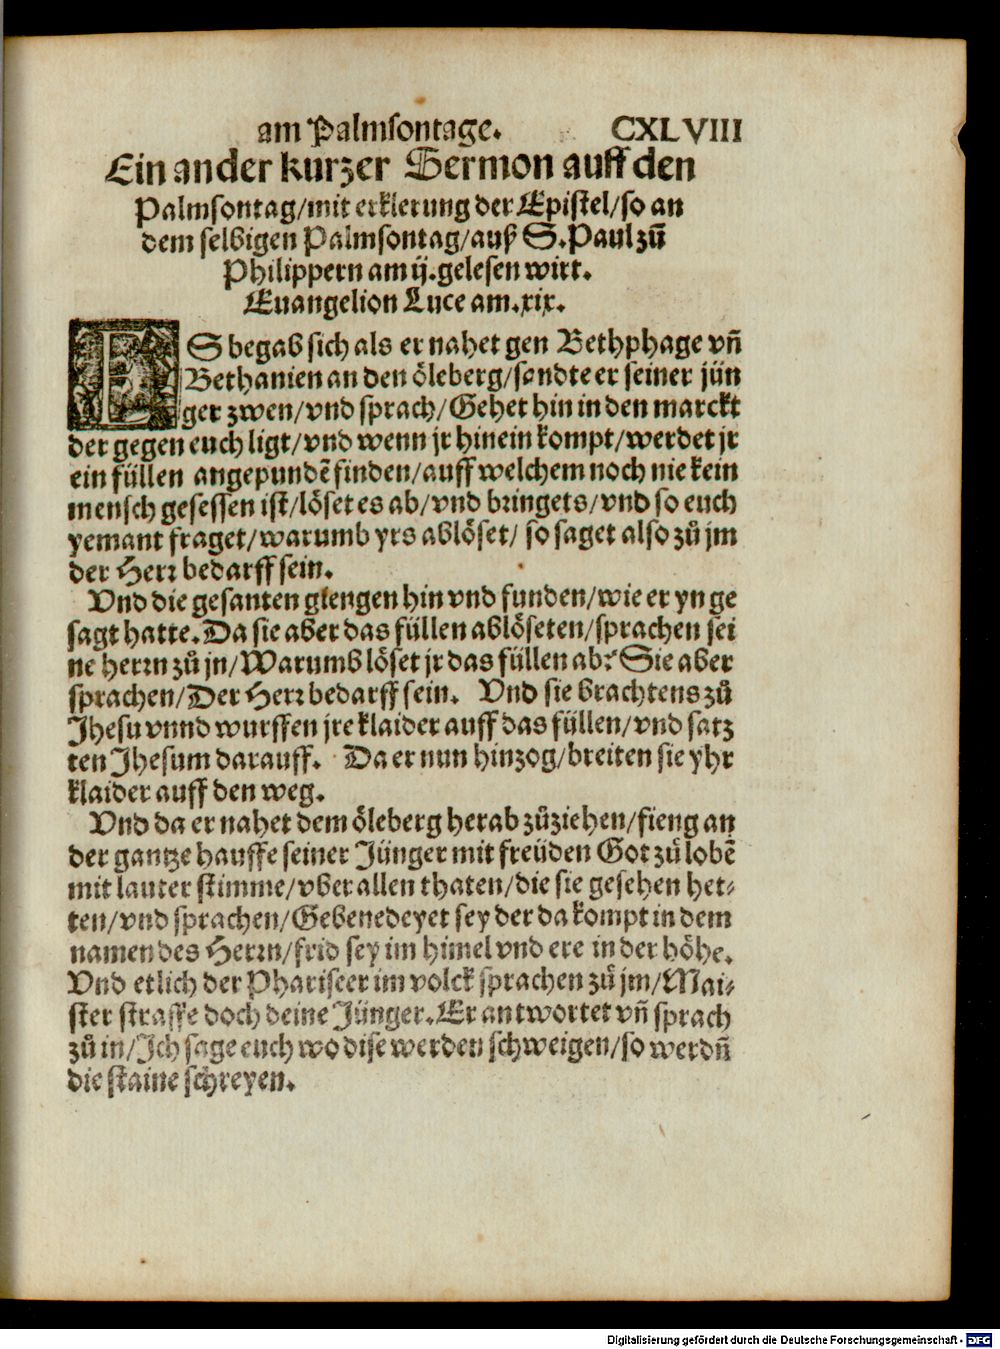 am Palmsontage. CXLVIII
Ein ander kurzer Sermon auff den
Palmsontag/mit erklerung der Epistel/so an
dem selbigen Palmsontag/auß S.Paul zů
Philippern am ij.gelesen wirt.
Euangelion Luce am.xix.
ES begab sich als er nahet gen Bethphage vñ
Bethanien an den öleberg/sandte er seiner jün
ger zwen/vnd sprach/Gehet hin in den marckt
der gegen euch ligt/vnd wenn jr hinein kompt/werdet jr
ein füllen angepundẽ finden/auff welchem noch nie kein
mensch gesessen ist/löset es ab/vnd bringets/vnd so euch
yemant fraget/warumb yrs ablöset/ so saget also zů jm
der Herr bedarff sein.
Vnd die gesanten giengen hin vnd funden/wie er yn ge
sagt hatte. Da sie aber das füllen ablöseten/sprachen sei
ne herrn zů jn/Warumb löset jr das füllen ab? Sie aber
sprachen/Der Herr bedarff sein. Vnd sie brachtens zů
Jhesu vnnd wurffen jre klaider auff das füllen/vnd satz
ten Jhesum darauff. Da er nun hinzog/breiten sie yhr
klaider auff den weg.
Vnd da er nahet dem öleberg herab zůziehen/fieng an
der gantze hauffe seiner Jünger mit freüden Got zů lobẽ
mit lauter stimme/vber allen thaten/die sie gesehen het-
ten/vnd sprachen/Gebenedeyet sey der da kompt in dem
namen des Herrn/frid sey im himel vnd ere in der höhe.
Vnd etlich der Phariseer im volck sprachen zů jm/Mai-
ster straffe doch deine Jünger. Er antwortet vñ sprach
zů in/Jch sage euch wo dise werden schweigen/so werdñ
die staine schreyen.
Digitalisierung gefördert durch die Deutsche Forschungsgemeinschaft - DFG